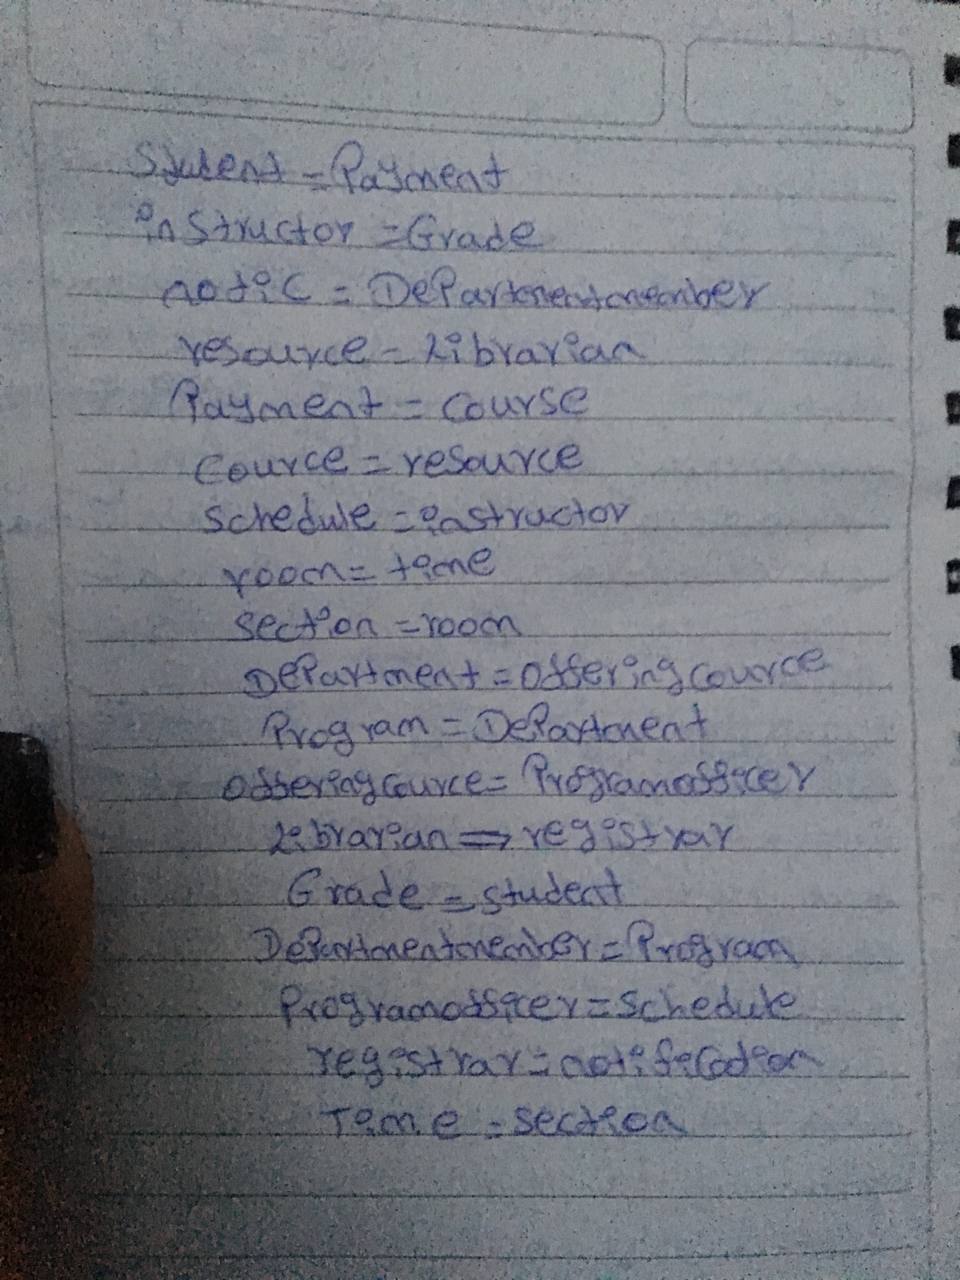 Student = Payment
instructor = Grade
notic = Departmentmember
resource = Librarian
Payment = Course
Cource = resource
schedule = instructor
room = time
section = room
Department = offering cource
Program = Department
offering cource = Programofficer
Librarian => registrar
Grade = student
Departmentmember = Program
Programofficer = schedule
registrar = notification
Time = section